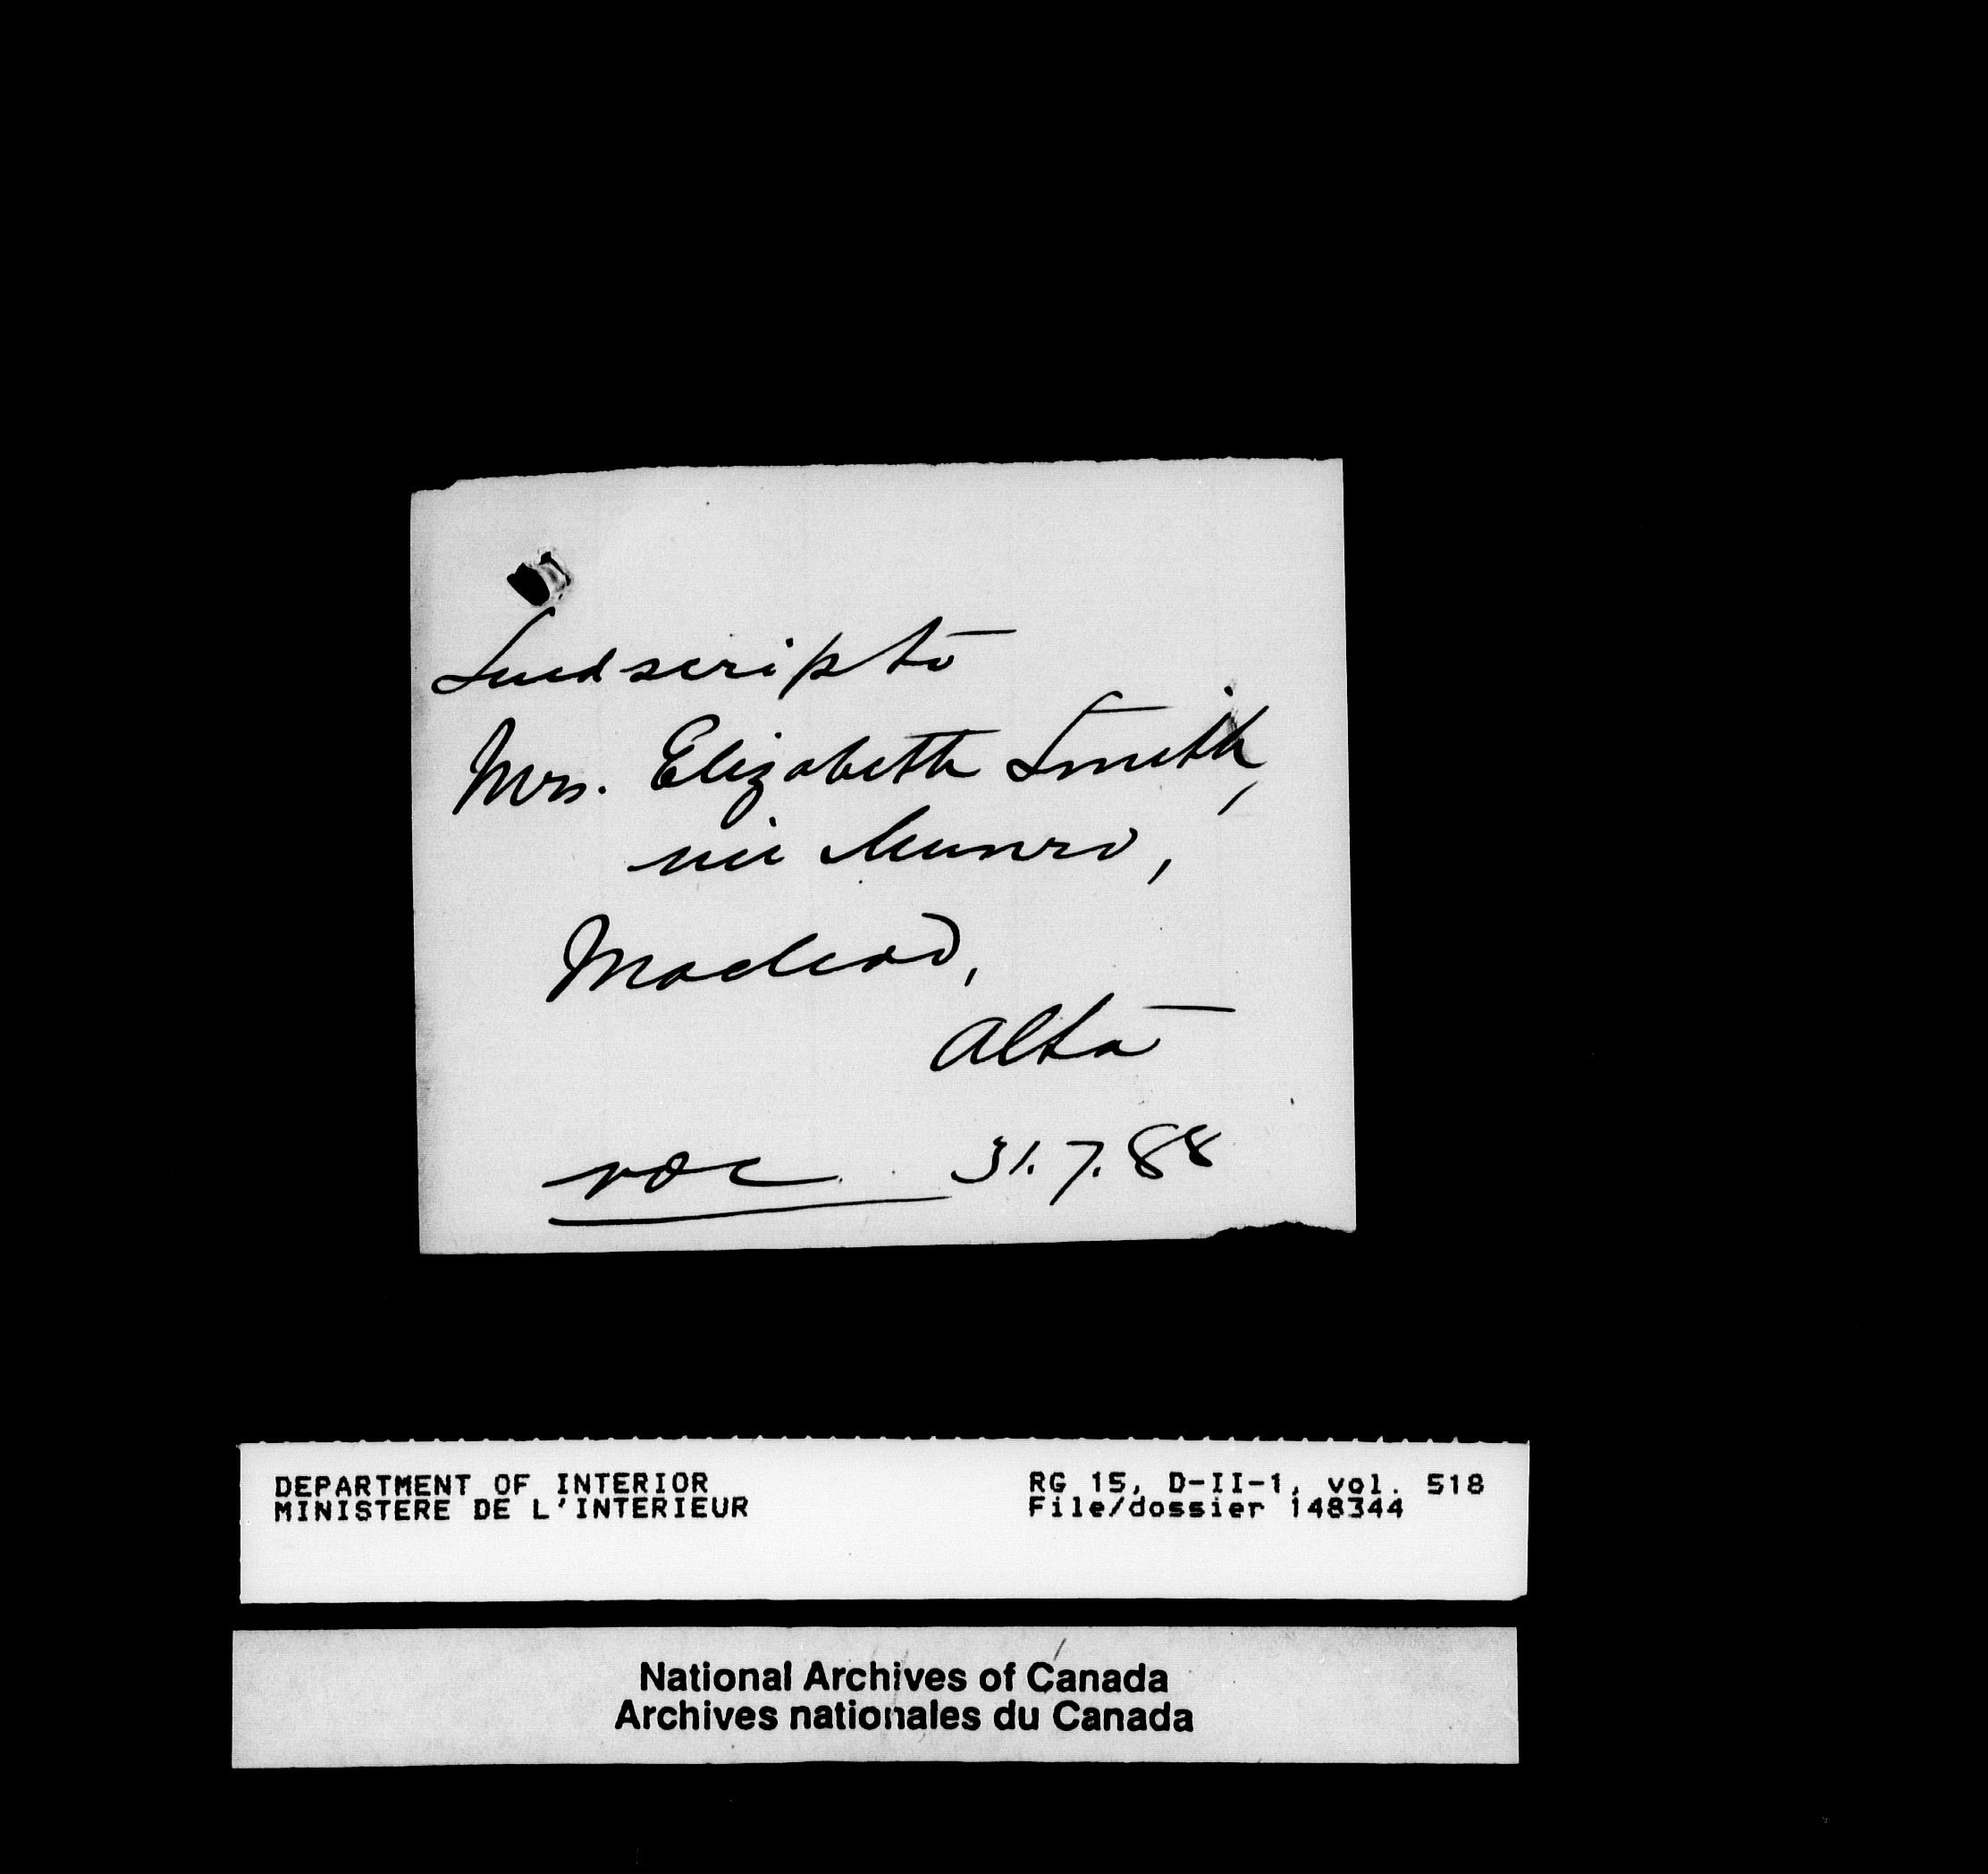 Send scrip to
Mrs. Elizabeth Smith,
née Munro,
Macleod,
Alta
31.7.88
DEPARTMENT OF INTERIOR
MINISTERE DE L'INTERIEUR
RG 15, D-II-1, vol. 518
File/dossier 148344
National Archives of Canada
Archives nationales du Canada